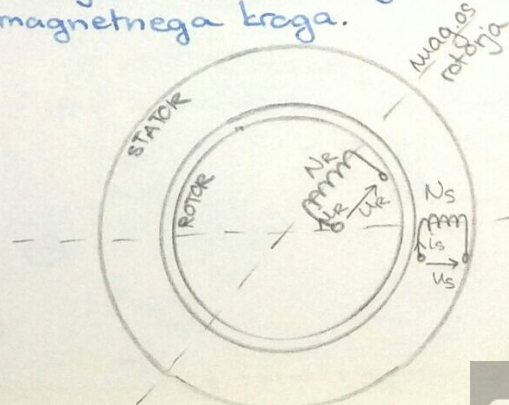 magnetnega kroga.
mag. os
rotorja
STATOR
ROTOR
NR
iR
UR
NS
is
us